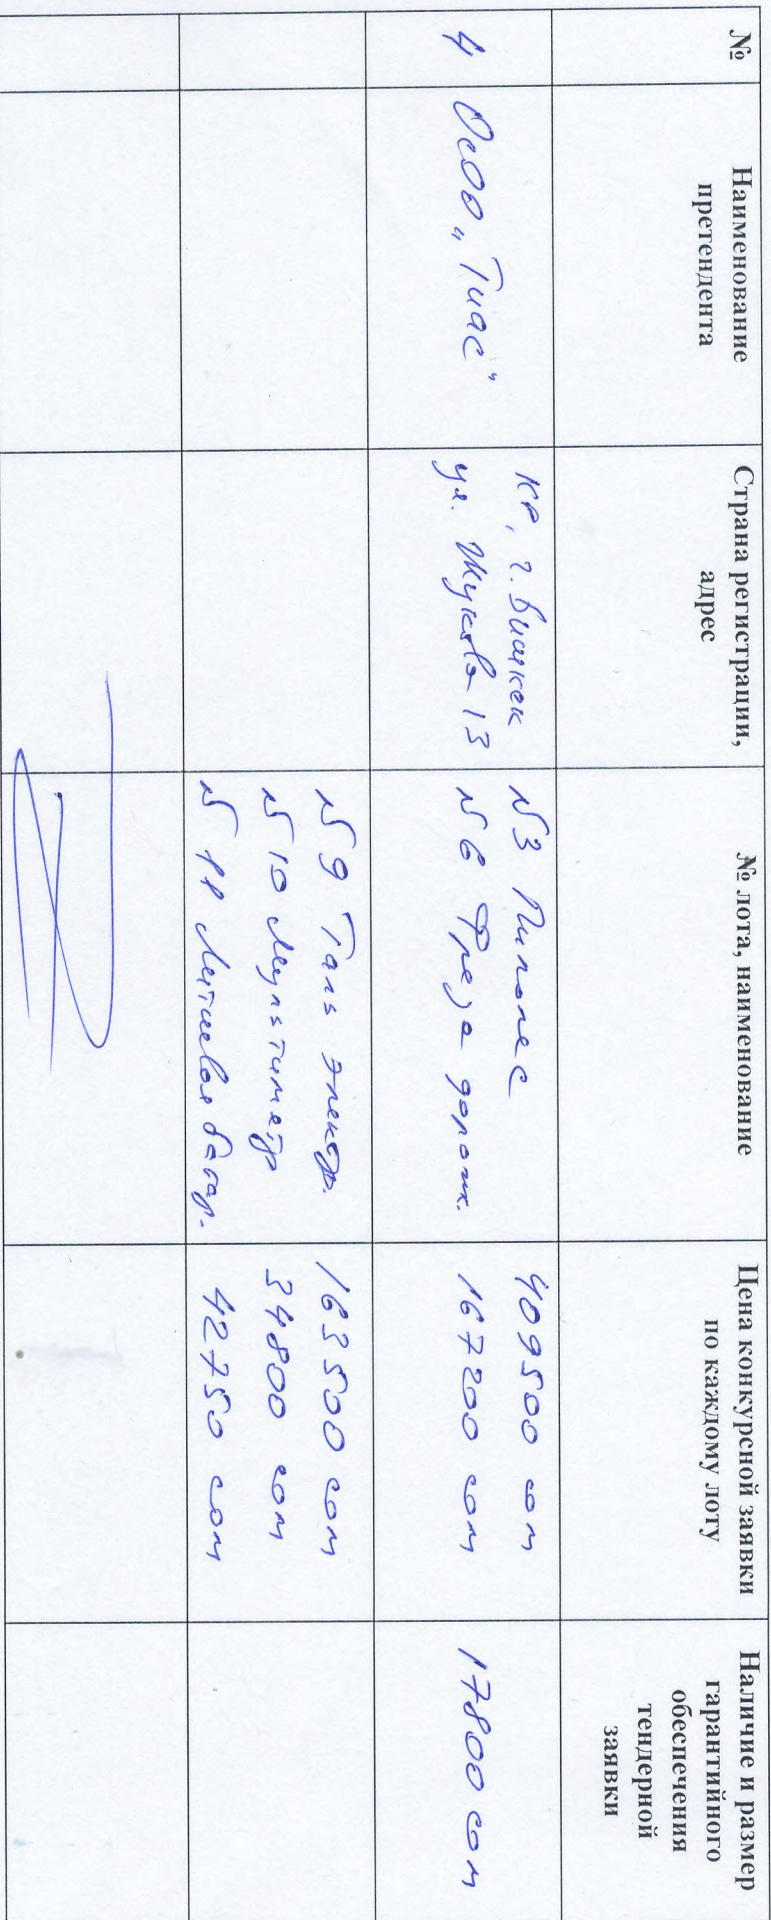 №
Наименование
претендента
Страна регистрации,
адрес
№ лота, наименование
Цена конкурсной заявки
по каждому лоту
Наличие и размер
гарантийного
обеспечения
тендерной
заявки
4
ОсОО „Тиас"
КР, г. Бишкек
ул. Жукова 13
№3 Пилолес
№ 6 Фреза дорож.
409500 сом
167200 сом
17800 сом
№ 9 Таль электр.
№ 10 Мультиметр
№ 11 Литиевая батар.
163500 сом
34800 сом
42750 сом